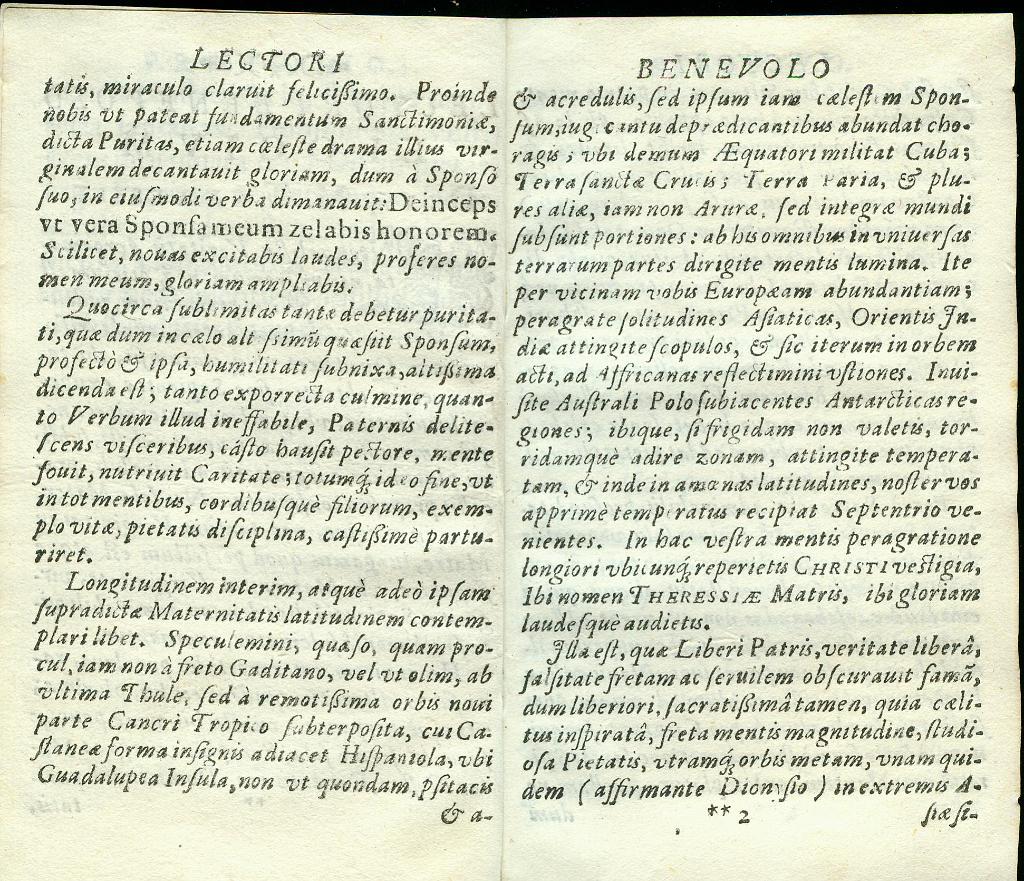 LECTORI
tatis, miraculo claruit felicißimo. Proinde
nobis vt pateat fundamentum Sanctimoniæ,
dicta Puritas, etiam cœleste drama illius vir-
ginalem decantauit gloriam, dum à Sponso
suo, in eiusmodi verba dimanauit: Deinceps
vt vera Sponsa meum zelabis honorem.
Scilicet, nouas excitabis laudes, proferes no-
men meum, gloriam ampliabis.
Quocirca sublimitas tanta debetur purita-
ti, quæ dum in cælo altissimũ quæsiit Sponsum,
profectò & ipsa, humilitati subnixa, altißima
dicenda est; tanto exporrecta culmine, quan-
to Verbum illud ineffabile, Paternis delite-
scens visceribus, casto hausit pectore, mente
fouit, nutriuit Caritate; totumq́; ideo fine, vt
in tot mentibus, cordibusquè filiorum, exem-
plo vitæ, pietatis disciplina, castißimè partu-
riret.
Longitudinem interim, atquè adeò ipsam
supradictæ Maternitatis latitudinem contem-
plari libet. Speculemini, quæso, quam pro-
cul, iam non à freto Gaditano, vel vt olim, ab
vltima Thule, sed à remotißima orbis noui
parte Cancri Tropico subterposita, cui Ca-
staneæ forma insignis adiacet Hispaniola, vbi
Guadalupea Insula, non vt quondam, psitacis
& a-
BENEVOLO
& acredulis, sed ipsum iam cælestem Spon-
sum, iugi cantu deprædicantibus abundat cho-
ragis; vbi demum Æquatori militat Cuba;
Terra sanctæ Crucis; Terra Paria, & plu-
res aliæ, iam non Aruræ, sed integræ mundi
subsunt portiones: ab his omnibus in vniuersas
terrarum partes dirigite mentis lumina. Ite
per vicinam vobis Europæam abundantiam;
peragrate solitudines Asiaticas, Orientis In-
diæ attingite scopulos, & sic iterum in orbem
acti, ad Affricanas reflectimini vstiones. Inui-
site Australi Polo subiacentes Antarcticas re-
giones; ibique, si frigidam non valetis, tor-
ridamquè adire zonam, attingite tempera-
tam, & inde in amœnas latitudines, noster vos
apprimè temperatus recipiat Septentrio ve-
nientes. In hac vestra mentis peragratione
longiori vbicunq́; reperietis CHRISTI vestigia,
Ibi nomen THERESSIÆ Matris, ibi gloriam
laudesquè audietis.
Illa est, quæ Liberi Patris, veritate liberâ,
falsitate fretam ac seruilem obscurauit famã,
dum liberiori, sacratißimâ tamen, quia cæli-
tus inspiratâ, freta mentis magnitudine, studi-
osa Pietatis, vtramq́; orbis metam, vnam qui-
dem (affirmante Dionysio) in extremis A-
** 2
siæ si-